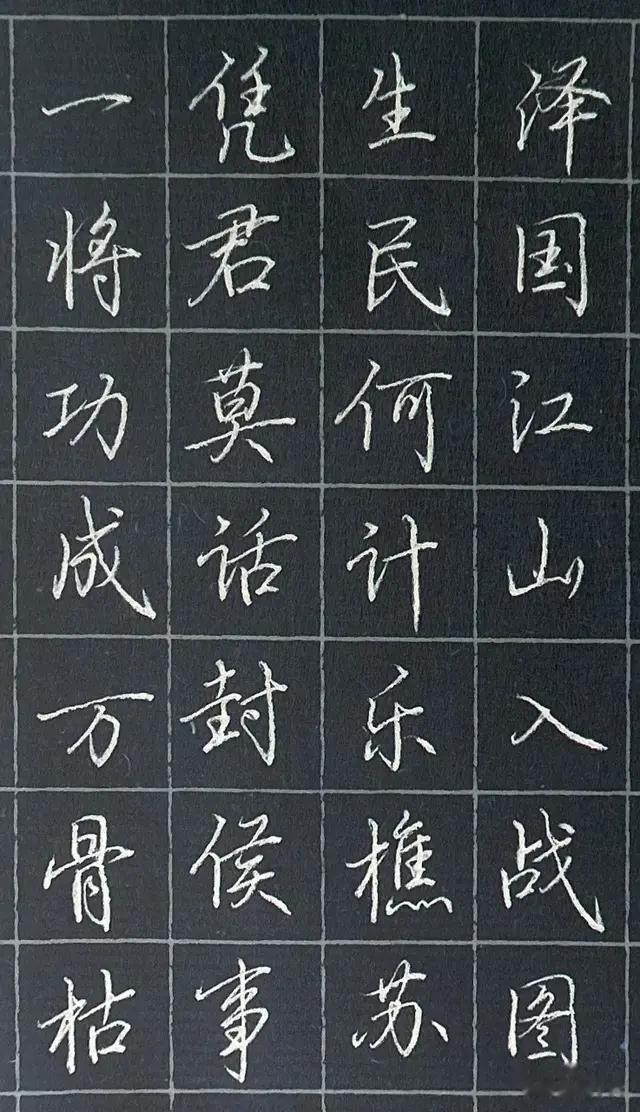 泽国江山入战图
生民何计乐樵苏
凭君莫话封侯事
一将功成万骨枯